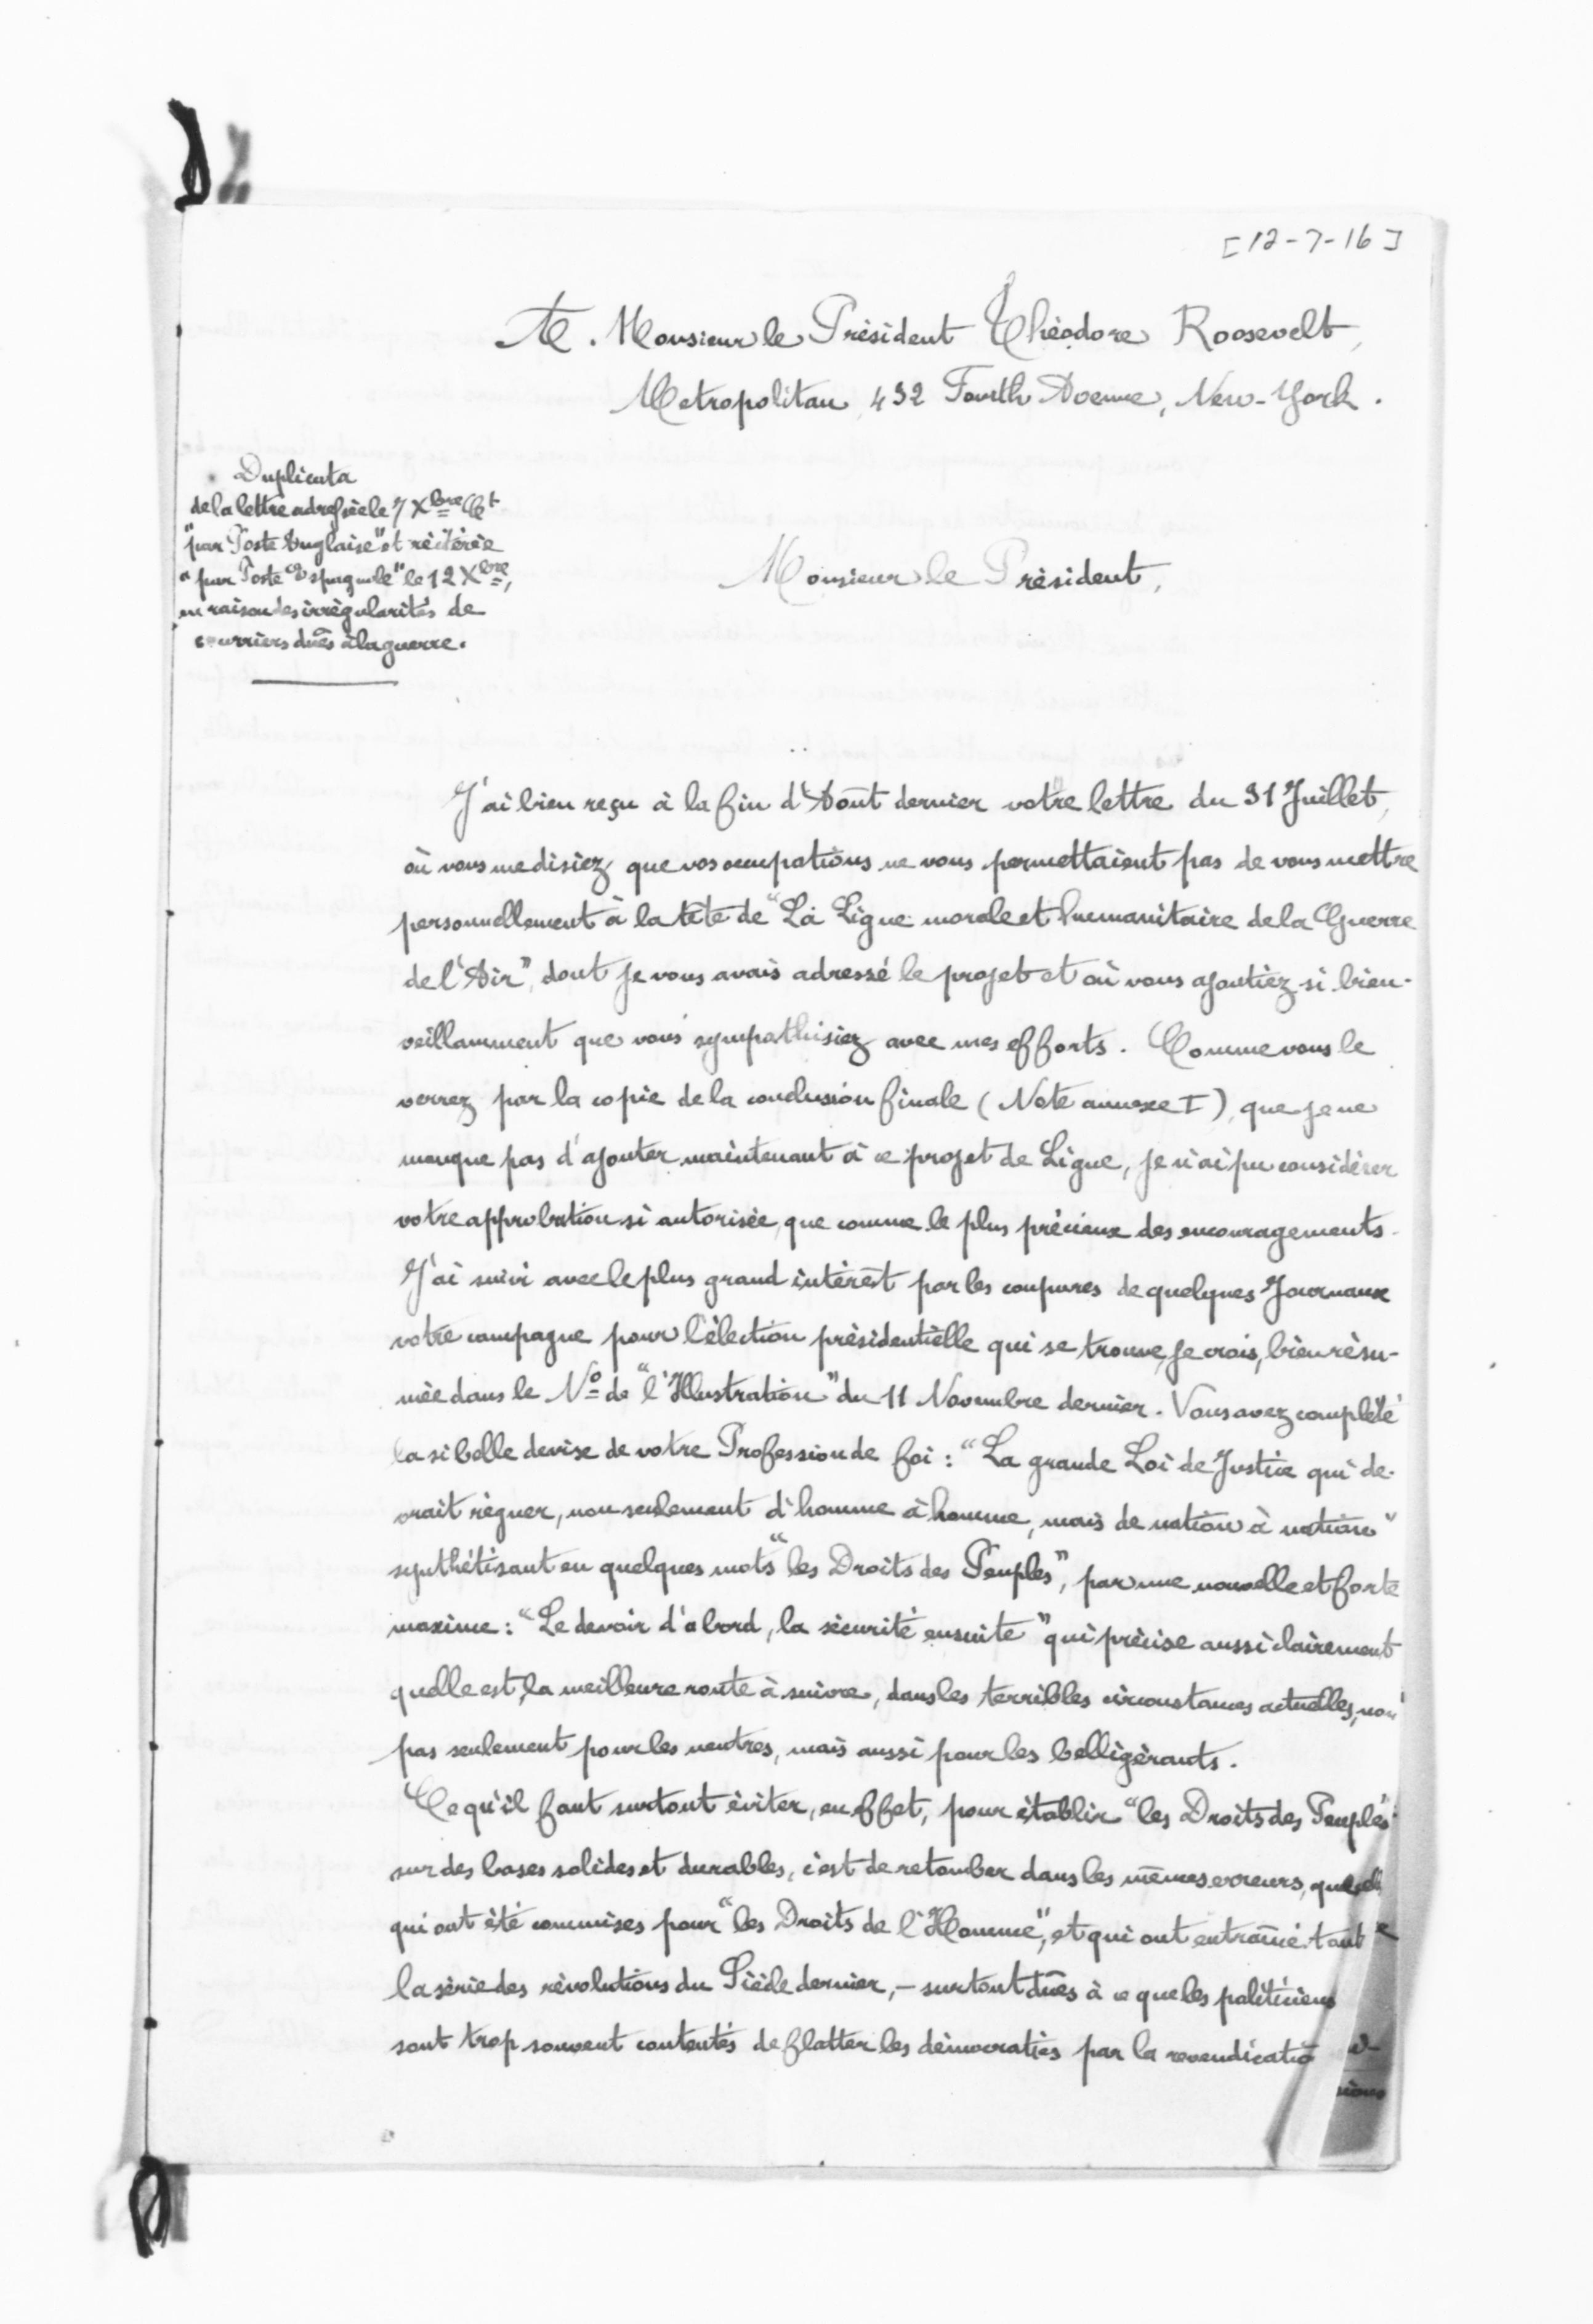 [12-7-16]
A. Monsieur le Président Théodore Roosevelt,
Metropolitan, 432 Fourth Avenue, New-York.
Duplicata
de la lettre adressée le 7 Xbre Ct
"par Poste Anglaise" et réitérée
"par Poste Espagnole" le 12 Xbre,
en raison des irrégularités de
courriers dûes à la guerre.
Monsieur le Président,
J'ai bien reçu à la fin d'Août dernier votre lettre du 31 Juillet,
où vous me disiez que vos occupations ne vous permettaient pas de vous mettre
personnellement à la tête de "La Ligue morale et humanitaire de la Guerre
de l'Air", dont je vous avais adressé le projet et où vous ajoutiez si bien-
veillamment que vous sympathisiez avec mes efforts. Comme vous le
verrez par la copie de la conclusion finale (Note annexe I), que je ne
manque pas d'ajouter maintenant à ce projet de Ligue, je n'ai pu considérer
votre approbation si autorisée, que comme le plus précieux des encouragements.
J'ai suivi avec le plus grand intérêt par les coupures de quelques Journaux
votre campagne pour l'élection présidentielle qui se trouve, je crois, bien résu-
mée dans le No de "l'Illustration" du 11 Novembre dernier. Vous avez complété
la si belle devise de votre Profession de foi: "La grande Loi de Justice qui de-
vrait régner, non seulement d'homme à homme, mais de nation à nation"
synthétisant en quelques mots "les Droits des Peuples", par une nouvelle et forte
maxime: "Le devoir d'abord, la sécurité ensuite" qui précise aussi clairement
quelle est la meilleure route à suivre, dans les terribles circonstances actuelles, non
pas seulement pour les neutres, mais aussi pour les belligérants.
Ce qu'il faut surtout éviter, en effet, pour établir "les Droits des Peuples"
sur des bases solides et durables, c'est de retomber dans les mêmes erreurs,
qui ont été commises pour "les Droits de l'Homme", et qui ont entraîné tout
la série des révolutions du Siècle dernier, — surtout dûes à ce que les politiciens
sont trop souvent contentés de flatter les démocraties par la revendicatio